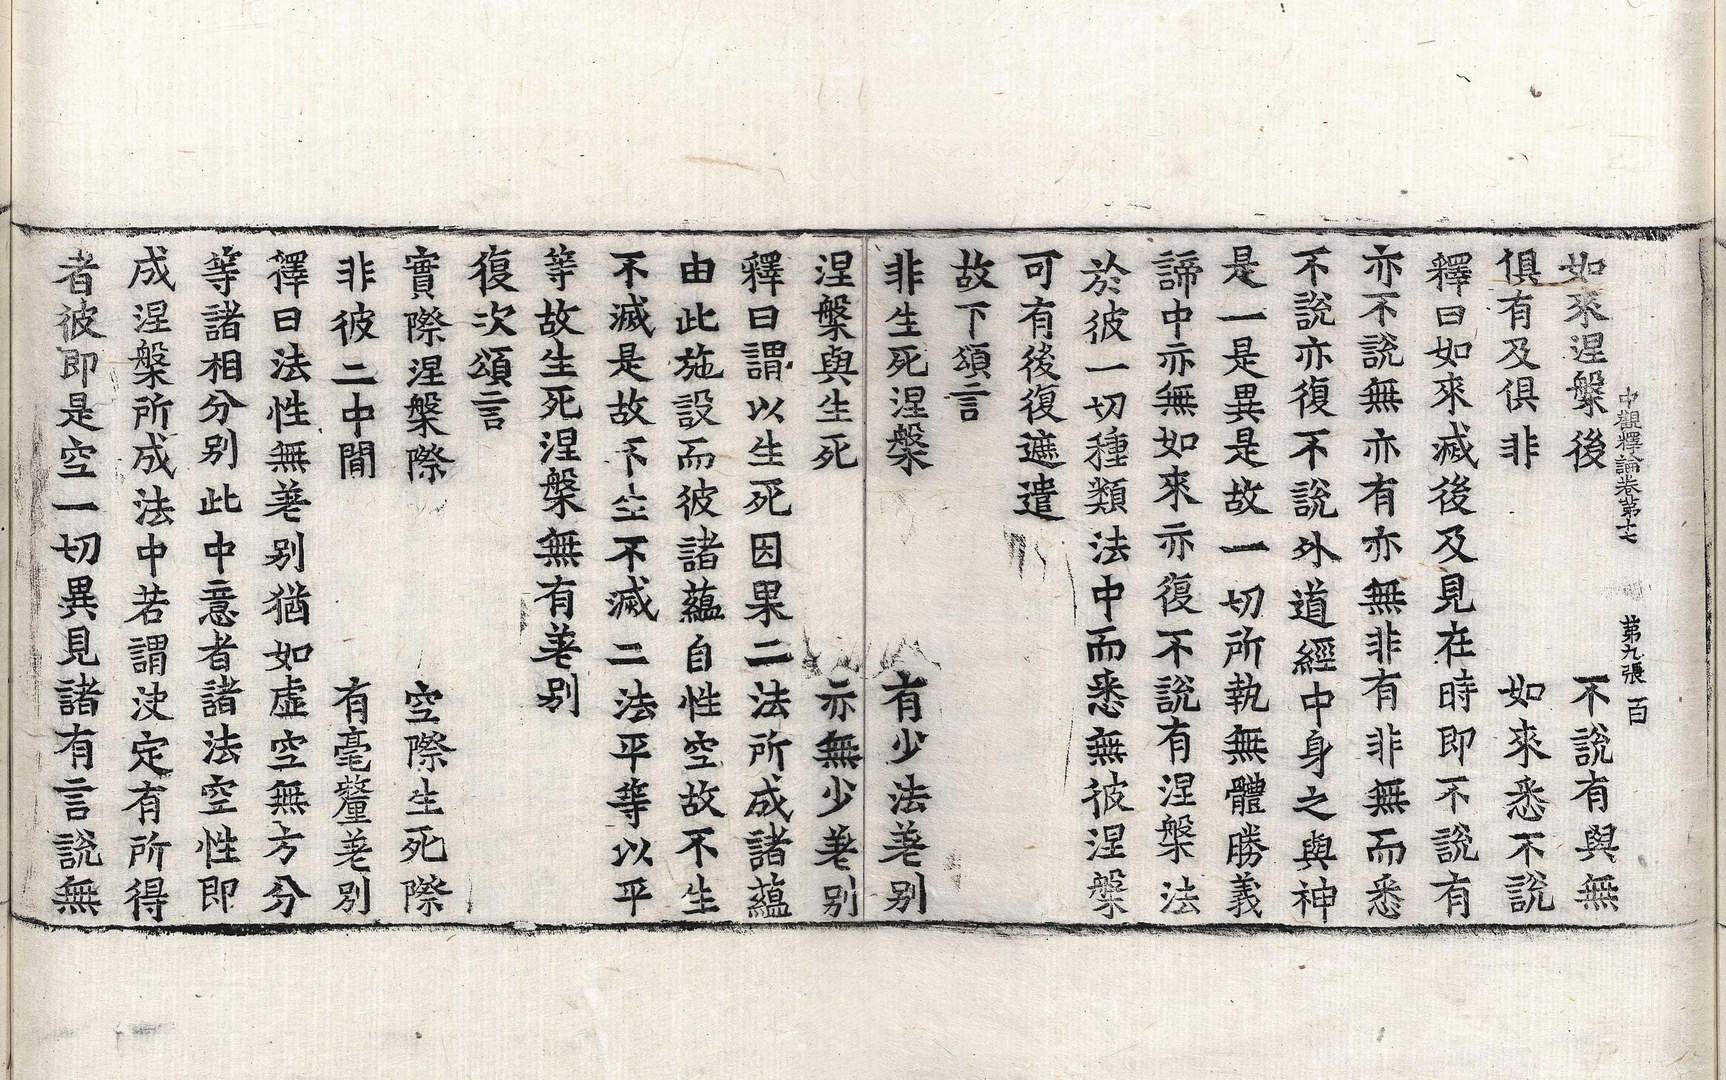 中觀釋論卷第十七　第九張　百
如來涅槃後　不說有與無
俱有及俱非　如來悉不說
釋曰如來滅後及見在時即不說有
亦不說無亦有亦無非有非無而悉
不說亦復不說外道經中身之與神
是一是異是故一切所執無體勝義
諦中亦無如來亦復不說有涅槃法
於彼一切種類法中而悉無彼涅槃
可有後復遮遣
故下頌言
非生死涅槃　有少法差别
涅槃與生死　亦無少差别
釋曰謂以生死因果二法所成諸蘊
由此施設而彼諸蘊自性空故不生
不滅是故不生不滅二法平等以平
等故生死涅槃無有差别
復次頌言
實際涅槃際　空際生死際
非彼二中間　有毫釐差别
釋曰法性無差别猶如虛空無方分
等諸相分别此中意者諸法空性即
成涅槃所成法中若謂決定有所得
者彼即是空一切異見諸有言說無